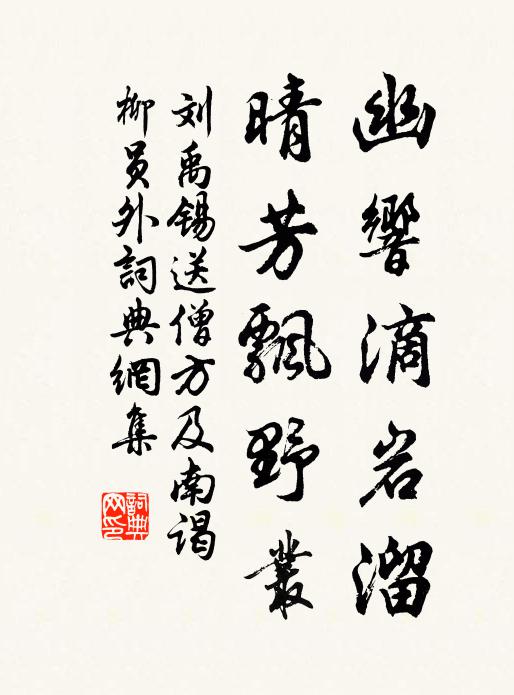 幽響滴岩溜
晴芳飄野叢
刘禹锡送僧方及南谒
柳員外詞典網集
詞典網印